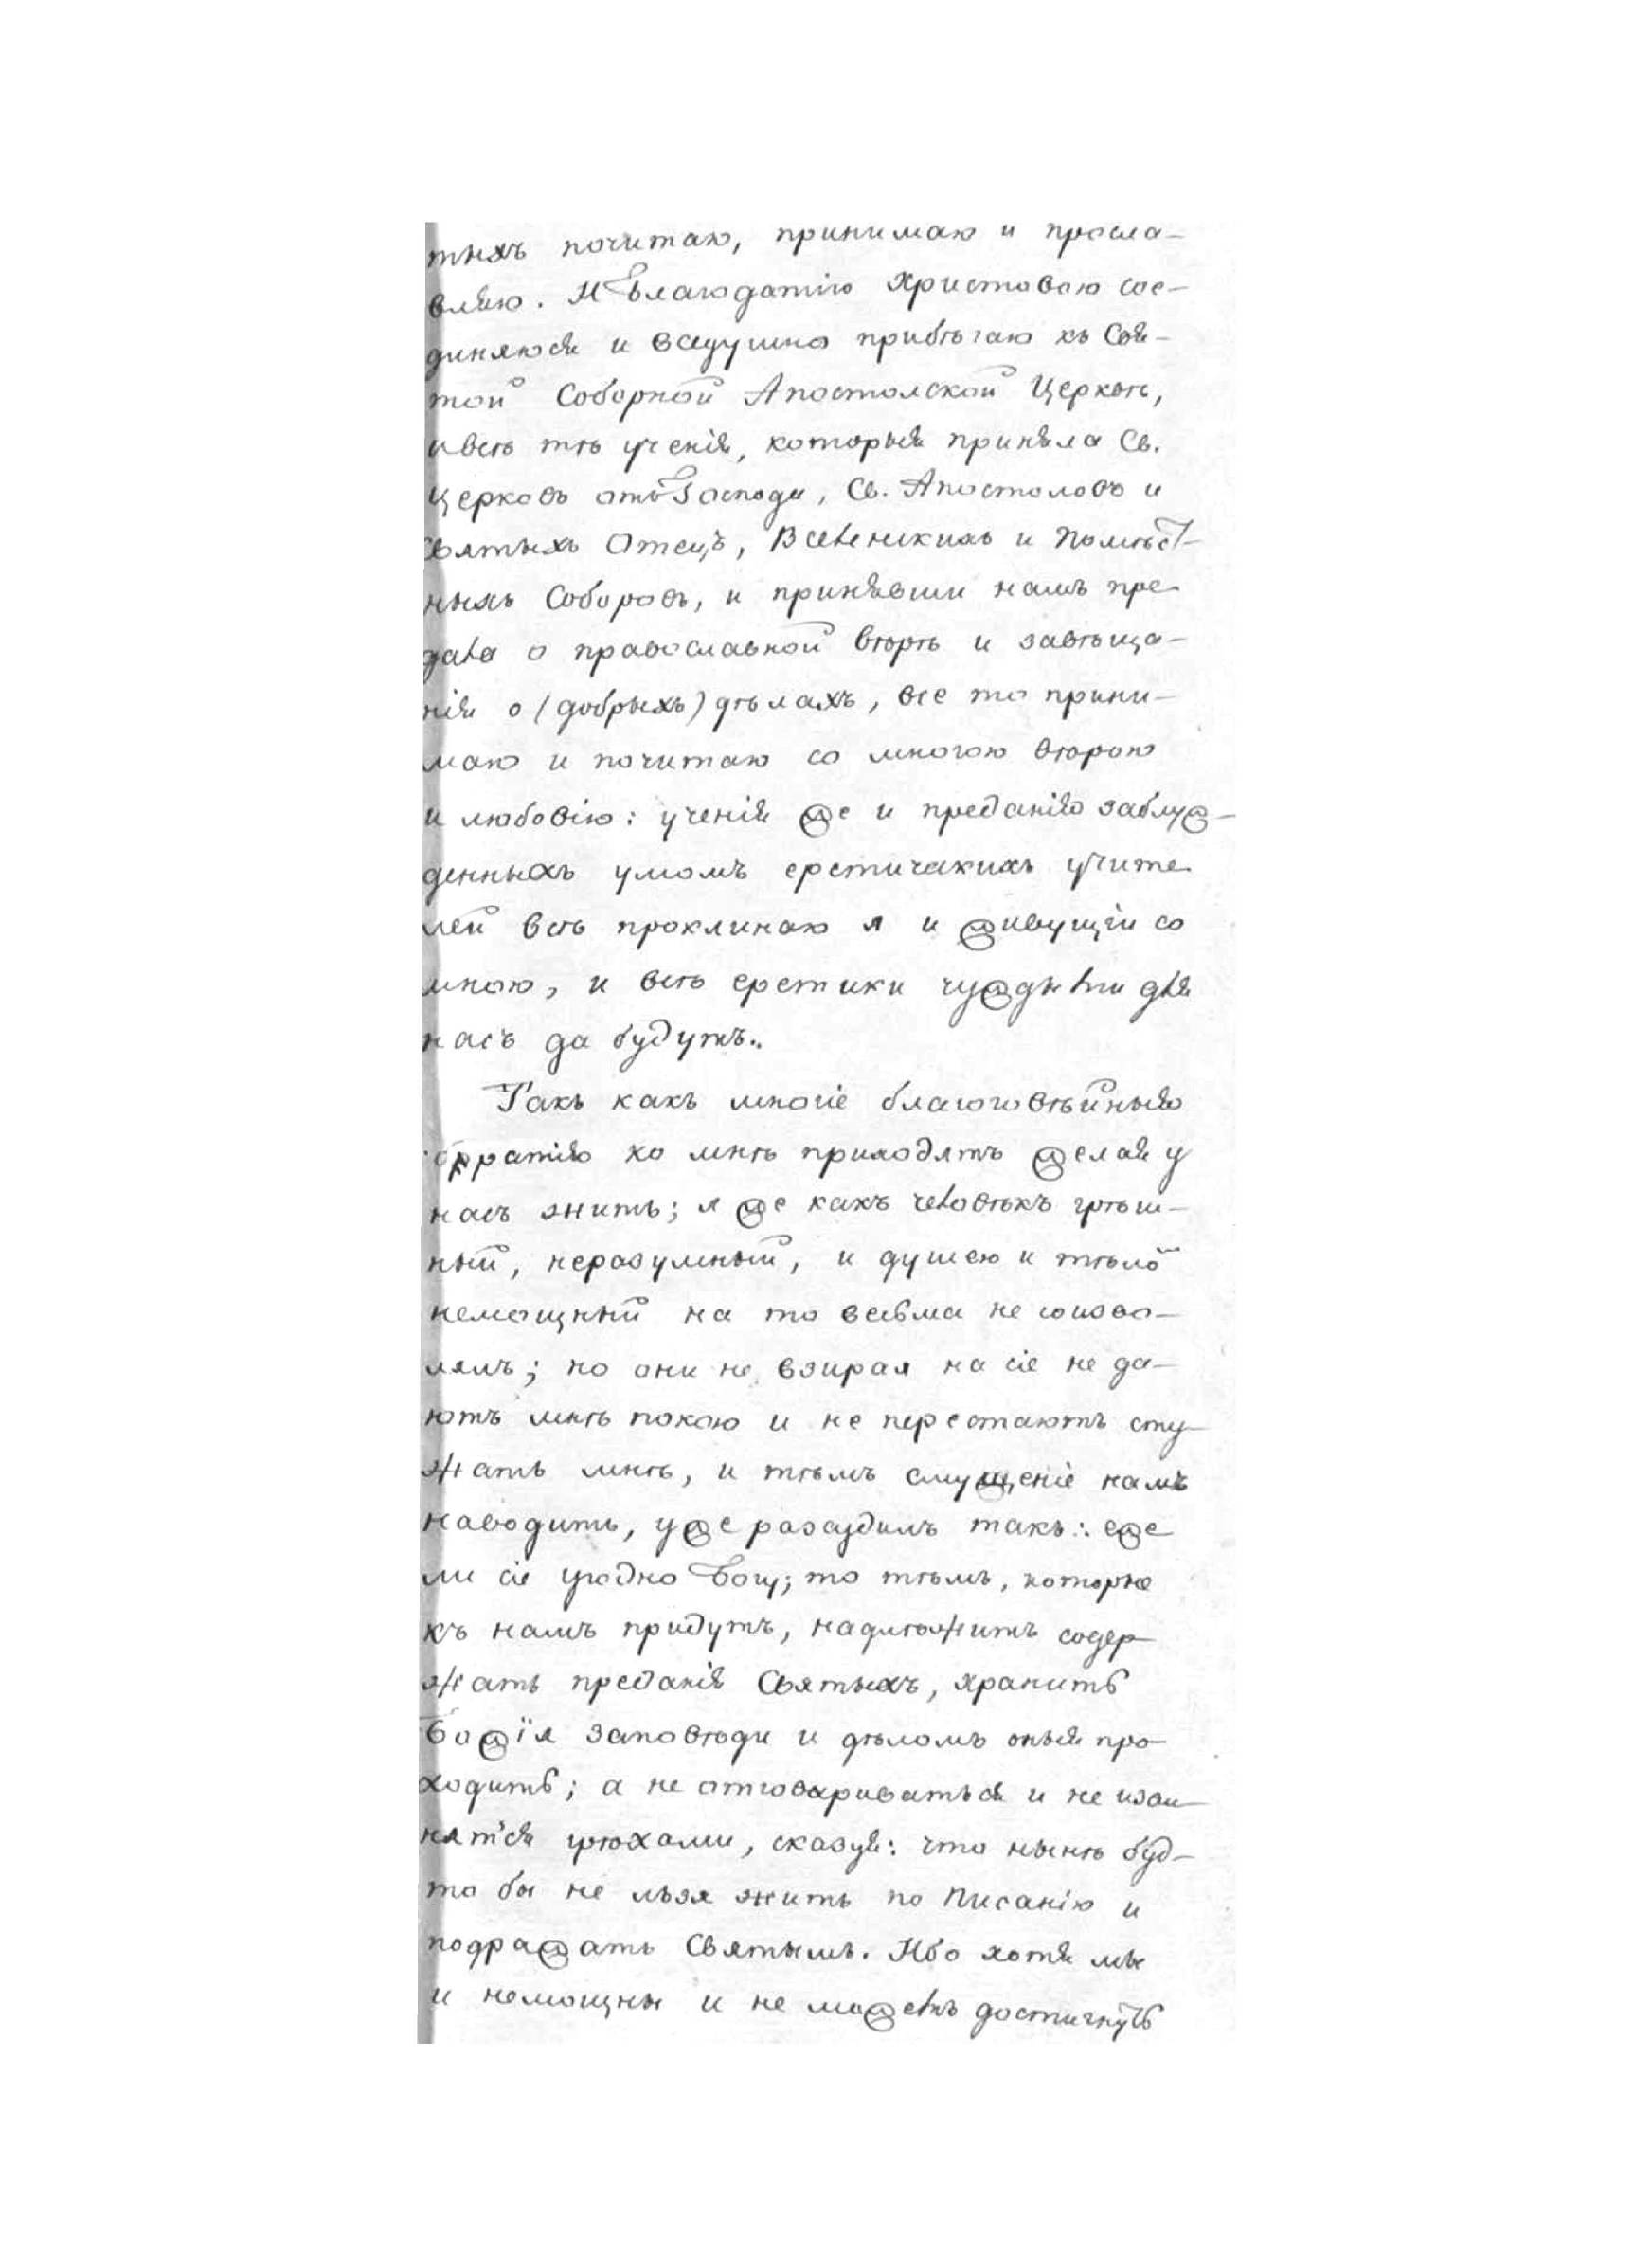 тыхъ почитаю, принимаю и просла-
вляю. И Благодатію Христовою сое-
диняюся и вседушно прибѣгаю къ Свя-
той Соборной Апостолской Церквѣ,
и всѣ тѣ ученія, которыя приняла Св.
Церковь отъ Господи, Св. Апостоловъ и
Святыхъ Отецъ, Вселенскихъ и Помѣст-
ныхъ Соборовъ, и принявши намъ пре
дала о православной вѣрѣ и завѣща-
нія о (добрыхъ) дѣлахъ, все то прини-
маю и почитаю со многою вѣрою
и любовію: ученія же и преданія заблуж-
денныхъ умомъ еретичакихъ учите
лей всѣ проклинаю я и живущіи со
мною, и всѣ еретики чужды ти для
насъ да будутъ..
Такъ какъ многіе благоговѣйныя
братія ко мнѣ приходятъ желая у
насъ жить; я же какъ человѣкъ грѣш-
ный, неразумный, и душею и тѣло
немощный на то весьма не соизво-
лялъ; но они не взирая на сіе не да-
ютъ мнѣ покою и не перестаютъ сту-
жать мнѣ, и тѣмъ смущеніе намъ
наводить, уже разсудилъ такъ: еже
ли сіе угодно Богу; то тѣмъ, которые
къ намъ придутъ, надлѣжитъ содер
жать преданія Святыхъ, хранить
Божія заповѣди и дѣломъ оныя про
ходить; а не отговариваться и не изви
нятся грѣхами, сказуя: что нынѣ буд-
то бы не льзя жить по Писанію и
подражать Святымъ. Ибо хотя мы
и немощны и не можемъ достигнуть